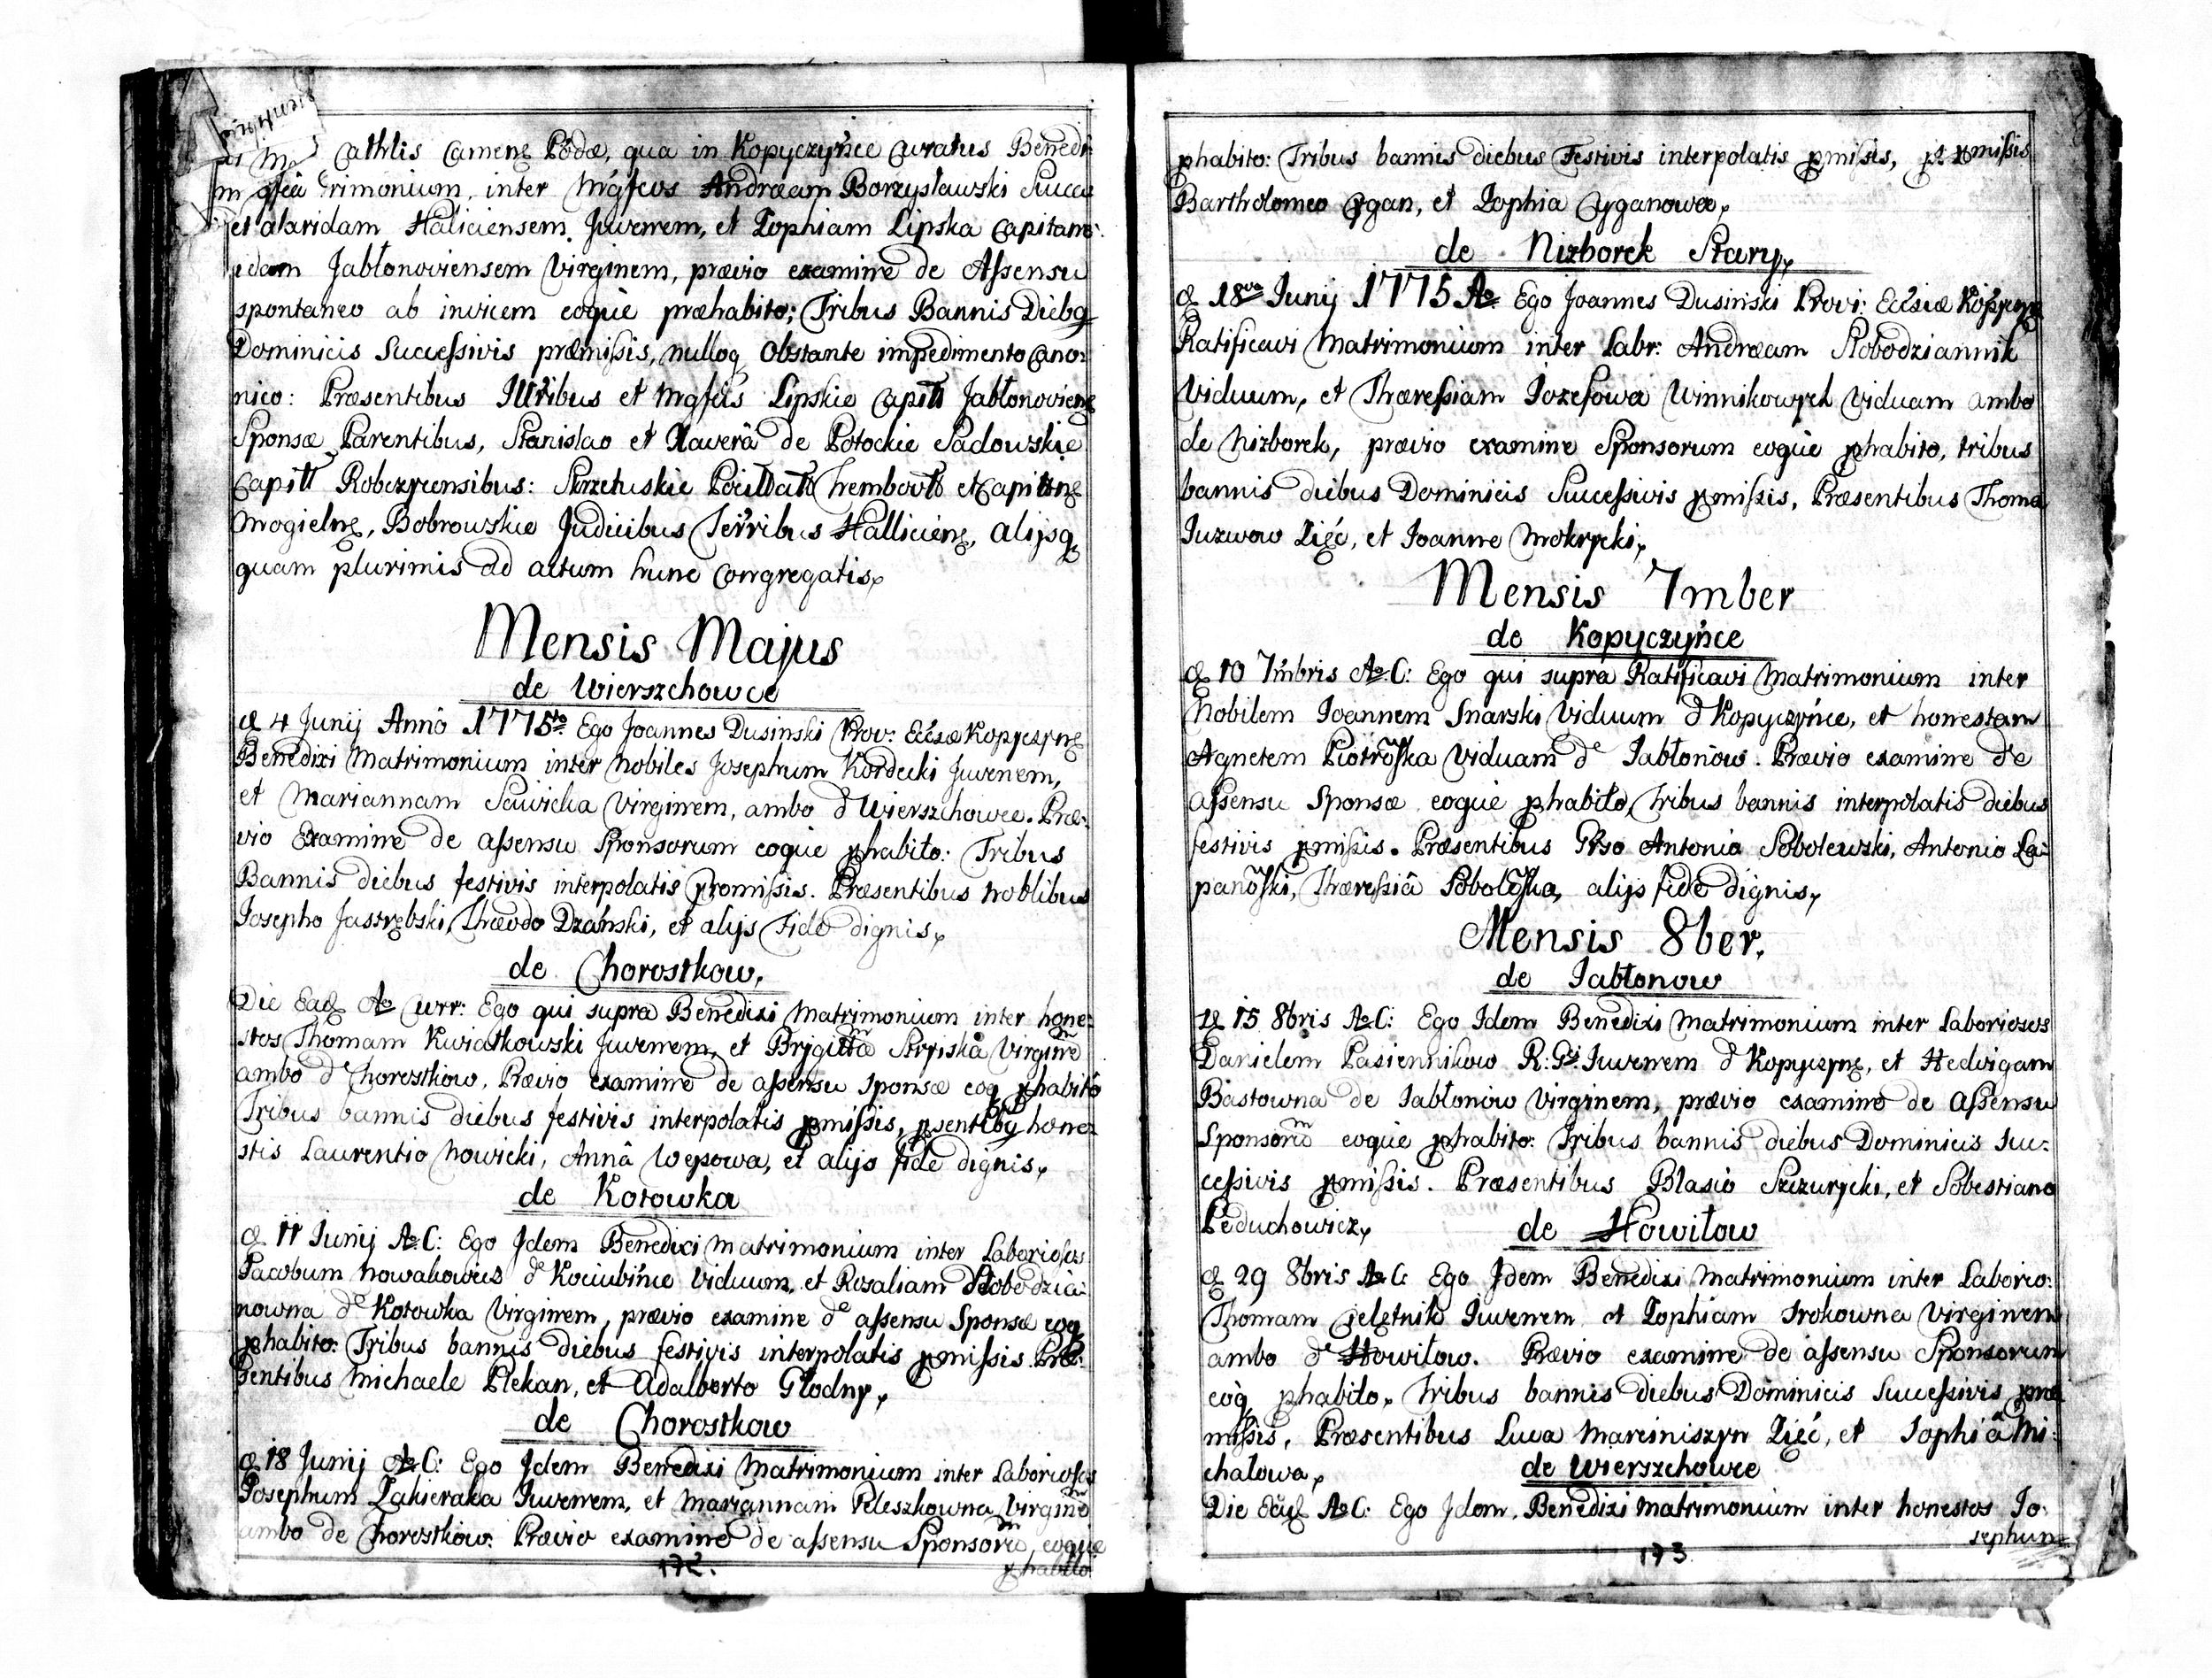 Cathlis Camene Pôdæ, qua in Kopyczyńce Curatus Benedi
rimonium inter Mgfcos Andræam Borzysławski Succa
et ataridam Haliciensem Juvenem, et Zophiam Lipska Capitane
dam Jabłonoviensem Virginem, prævio examine de Assensu
spontaneo ab invicem eoque præhabito; Tribus Bannis Diebq
Dominicis Successivis præmissis, nulloq Obstante impedimento Cano:
nico: Præsentibus Illribus et Mgfcis Lipskie Capitt Jabłonoviens
Sponsæ Parentibus, Stanislao et Xaverâ de Potockie Sadowskie
Capitt Robczycensibus: Strzetuskie Trembowl et Capitane
Mogielne, Bobrowskie Judicibus Terribus Halliciens, alijsq
quam plurimis ad actum hunc Congregatis.
Mensis Majus
de Wierszchowce
D 4 Junij Annô 1775to Ego Joannes Dusinski Prov: Ecclsæ Kopyczyne
Benedixi Matrimonium inter Nobiles Josephum Kordecki Juvenem,
et Mariannam Sawicka Virginem, ambo d Wierszchowce. Præ:
vio Examine de assensu Sponsorum eoque phabito: Tribus
Bannis diebus festivis interpolatis promissis. Præsentibus Noblibus
Josepho Jastrzębski, Thæodo Dzański, et alijs Fide dignis.
de Chorostkow.
Die Ead Ao Curr: Ego qui supra Benedixi Matrimonium inter hone:
stos Thomam Kwiatkowski Juvenem, et Brygittã Stryiska Virginẽ
ambo d Chorostkow. Prævio examine de assensu sponsæ eoq phabito
Tribus bannis diebus festivis interpolatis pmissis, psentibq hone:
stis Laurentio Nowicki, Annâ Wepowa, et alijs fide dignis.
de Kotowka
D 11 Junij A C: Ego Jdem Benedixi Matrimonium inter Laboriosos
Jacobum Nowakowicz d Kociubińce Viduum, et Rosaliam Słobodzia:
nowna de Kotowka Virginem, prævio examine de assensu Sponsæ eoq
phabito: Tribus bannis diebus festivis interpolatis pmissis. Præ:
sentibus Michaele Plekan, et Adalberto Głodny.
de Chorostkow
D 18 Junij A C: Ego Jdem Benedixi Matrimonium inter Laboriosos
Josephum Zakieraka Juvenem, et Mariannam Peleszkowna Virginẽ
ambo de Chorostkow. Prævio examine de assensu Sponsorũ eoque
phabito
172.
phabito: Tribus bannis diebus Festivis interpolatis pmissis,
Bartholomeo Cygan, et Zophia Cyganowa.
de Nizborek Stary.
D 18va Junij 1775 Ao Ego Joannes Dusiński Prov: Ecclsiæ Kopyczyne
Ratificavi Matrimonium inter Labr: Andræam Słobodziannik
Viduum, et Thæressiam Jozefowa Winnikowych Viduam ambo
de Nizborek, prævio examine Sponsorum eoque phabito, tribus
bannis diebus Dominicis Successivis pmissis, Præsentibus Thoma
Juzwow Zięć, et Joanne Mokrycki.
Mensis 7mber
de Kopyczyńce
D 10 7mbris A C: Ego qui supra Ratificavi Matrimonium inter
Nobilem Joannem Snarski Viduum d Kopyczyńce, et honestam
Agnetem Piotrõska Viduam de Jabłonów. Prævio examine de
assensu Sponsæ eoque phabito, tribus bannis interpolatis diebus
festivis pmissis. Præsentibus Grso Antonio Sobolewski, Antonio Ła:
panõski, Thæressiâ Sobolẽska, alijs fide dignis.
Mensis 8ber.
de Jabłonow
D 15 8bris A C: Ego Idem Benedixi Matrimonium inter Laboriosos
Danielem Pasiennikow R: Gci: Juvenem d Kopyczyne, et Hedvigam
Bastowna de Jabłonow Virginem, prævio examine de assensu
Sponsorũ eoque phabito: Tribus bannis diebus Dominicis suc:
cessivis pmissis. Præsentibus Blasio Szczurycki, et Sebestiano
Peduchowicz.
de Howiłow
D 29 8bris A C: Ego Jdem Benedixi Matrimonium inter Laborio:
Thomam Cieletnik Juvenem et Zophiam Srokowna Virginem
ambo de Howiłow. Prævio examine de assensu Sponsorum
eoq phabito. Tribus bannis diebus Dominicis Successivis præ
missis. Præsentibus Luca Marciniszyn Zięć, et Sophiâ Mi:
chałowa.
de Wierszchowce
Die Ead A C: Ego Jdem. Benedixi Matrimonium inter honestos Jo:
sephum
173